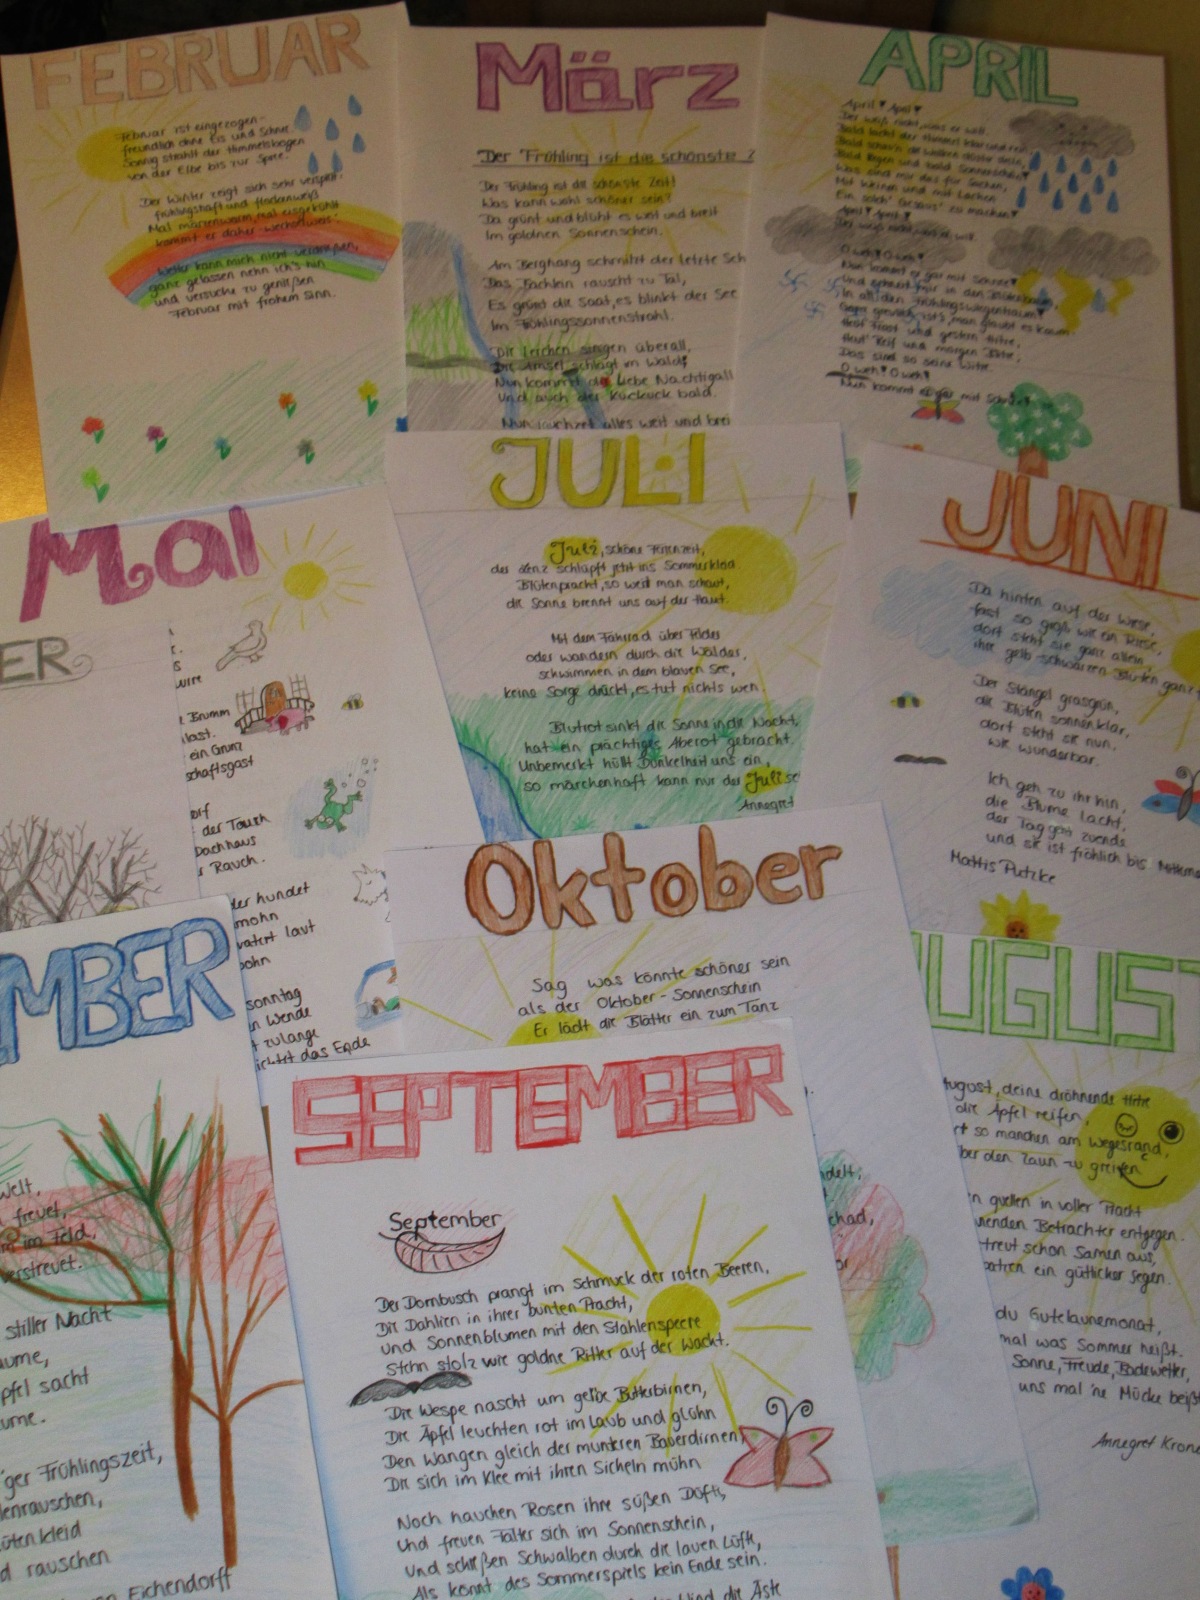 FEBRUAR
Februar ist eingezogen-
freundlich ohne Eis und Schnee.
Sonnig strahlt der Himmelsbogen
von der Elbe bis zur Spree.
Der Winter zeigt sich sehr verspielt.
frühlingshaft und flockenweiß
Mal märzenwarm, mal eisgekühlt
kommt er daher-wechselweis.
Wetter kann mich nicht verdrießen,
ganz gelassen nehm ich's hin
und versuche zu genießen
Februar mit frohem Sinn.
März
Der Frühling ist die schönste Z
Der Frühling ist die schönste Zeit!
Was kann wohl schöner sein?
Da grünt und blüht es weit und breit
Im goldnen Sonnenschein.
Am Berghang schmilzt der letzte Sch
Das Bächlein rauscht zu Tal,
Es grünt die Saat, es blinkt der See
Im Frühlingssonnenstrahl.
Die Lerchen singen überall,
Die Amsel schlägt im Wald!
Nun kommt die liebe Nachtigall
Und auch der Kuckuck bald.
Nun jauchzet alles weit und brei
APRIL
April! April!
Der weiß nicht, was er will.
Bald lacht der Himmel klar und rein,
Bald schau'n die Wolken düster drein,
Bald Regen und bald Sonnenschein!
Was sind mir das für Sachen,
Mit Weinen und mit Lachen
Ein solch' Gesaus' zu machen!
April! April!
Der weiß nicht, was er will.
O weh! O weh!
Nun kommt er gar mit Schnee!
Und schneit mir in den Blütenbaum,
In all den Frühlingswiegentraum!
Ganz greulich ist's, man glaubt es kaum:
Heut' Frost und gestern Hitze,
Heut' Reif und morgen Blitze;
Das sind so seine Witze.
O weh! O weh!
Nun kommt er gar mit Schnee!
MaI
ER
Brumm
last.
ein Grunz
schaftsgast
der Tauch
Dachhaus
Rauch.
der hundet
mohn
laut
sonntag
Wende
zulange
das Ende
JULI
Juli, schöne Ferienzeit,
der Lenz schlüpft jetzt ins Sommerkleid.
Blütenpracht, so weit man schaut,
die Sonne brennt uns auf der Haut.
Mit dem Fahrrad über Felder
oder wandern durch die Wälder,
schwimmen in dem blauen See,
keine Sorge drückt, es tut nichts weh.
Blutrot sinkt die Sonne in die Nacht,
hat ein prächtiges Abenrot gebracht.
Unbemerkt hüllt Dunkelheit uns ein,
so märchenhaft kann nur der Juli se
Annegret
JUNI
Da hinten auf der Wiese,
fast so groß wie ein Riese,
dort steht sie ganz allein,
ihre gelb-schwarzen Blüten ganz
Der Stängel grasgrün,
die Blüten sonnenklar,
dort steht sie nun,
wie wunderbar.
Ich geh zu ihr hin,
die Blume lacht,
der Tag geht zuende
und sie ist fröhlich bis Mittern
Mattis Putzke
Oktober
Sag was könnte schöner sein
als der Oktober-Sonnenschein
Er lädt die Blätter ein zum Tanz
delt,
chad,
UGUST
ugust, deine dröhnende Hitze
die Äpfel reifen,
rt so manchen am Wegesrand,
ber den Zaun zu greifen.
n quellen in voller Pracht
enden Betrachter entgegen.
treut schon Samen aus,
ein göttlicher Segen.
du Gutelaunemonat,
mal was Sommer heißt.
Sonne, Freude, Badewetter,
uns mal 'ne Mücke beißt
Annegret Krone
MBER
Welt,
freuet,
im Feld,
verstreuet.
stiller Nacht
ume,
pfel sacht
ume.
ger Frühlingszeit,
lenrauschen,
ütenkleid
d rauschen
Eichendorff
SEPTEMBER
September
Der Dornbusch prangt im Schmuck der roten Beeren,
Die Dahlien in ihrer bunten Pracht,
und Sonnenblumen mit den Stahlenspeere
Stehn stolz wie goldne Ritter auf der Wacht.
Die Wespe nascht um gelbe Butterbirnen,
Die Äpfel leuchten rot im Laub und glühn
Den Wangen gleich der munteren Bauerdirnen,
Die sich im Klee mit ihren Sicheln mühn
Noch hauchen Rosen ihre süßen Düfte,
Und freuen Falter sich im Sonnenschein,
Und schießen Schwalben durch die lauen Lüfte,
Als könnt des Sommerspiels kein Ende sein.
sind die Äste